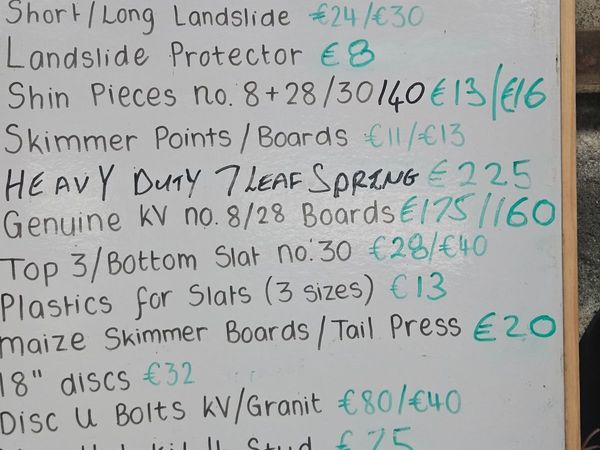 Short/Long Landslide €24/€30
Landslide Protector €8
Shin Pieces no. 8+28/30/40 €13/€16
Skimmer Points/Boards €11/€13
HEAVY DUTY 7 LEAF SPRING €225
Genuine KV no. 8/28 Boards €175/160
Top 3/Bottom Slat no. 30 €28/€40
Plastics for Slats (3 sizes) €13
Maize Skimmer Boards/Tail Press €20
18" discs €32
Disc U Bolts KV/Granit €80/€40
Stud €75